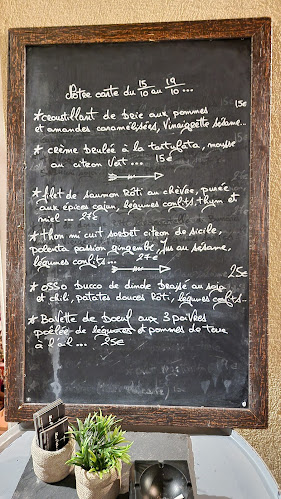 Notre carte du 15/10 au 19/10 ...
15€
* croustillant de brie aux pommes
et amandes caramélisées, Vinaigrette sésame...
* crème brulée à la tartufata, mousse
au citron vert ... 15€
* filet de saumon Rôti au chèvre, purée
aux épices cajun, légumes confits, thym et
miel ... 27€
* Thon mi cuit sorbet citron de sicile,
polenta passion gingembe, Jus au sésame,
légumes confits ... 27€
25€
* osso Bucco de dinde Braisé au soja
et chili, patates douces Rôti, légumes confits...
* Bavette de Boeuf aux 3 poivres
poêlée de légumes et pommes de terre
à l'ail ... 25€